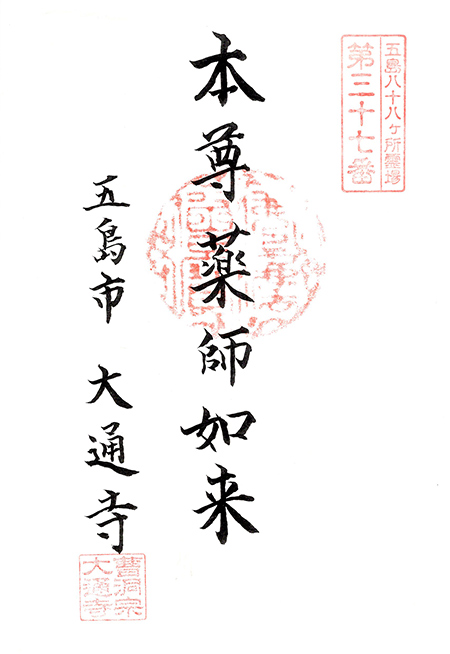 五島八十八ヶ所霊場
第三十七番
本尊薬師如来
五島市 大通寺
曹洞宗
大通寺